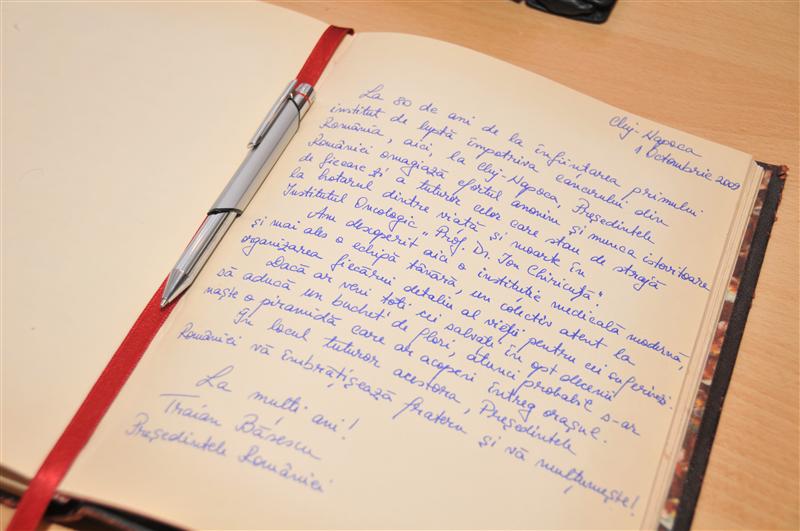 Cluj-Napoca
1 Octombrie 2009
La 80 de ani de la înființarea primului
institut de luptă împotriva cancerului din
România, aici, la Cluj-Napoca, Președintele
României omagiază efortul anonim și munca istovitoare
de fiecare zi a tuturor celor care stau de strajă
la hotarul dintre viață și moarte în
Institutul Oncologic „Prof. Dr. Ion Chiricuță".
Am descoperit aici o instituție medicală modernă,
și mai ales o echipă tânără, un colectiv atent la
organizarea fiecărui detaliu al vieții pentru cei suferinzi.
Dacă ar veni toți cei salvați în opt decenii
să aducă un buchet de flori, atunci probabil s-ar
naște o piramidă care ar acoperi întreg orașul.
În locul tuturor acestora, Președintele
României vă îmbrățișează fratern și vă mulțumește!
La mulți ani!
Traian Băsescu
Președintele României